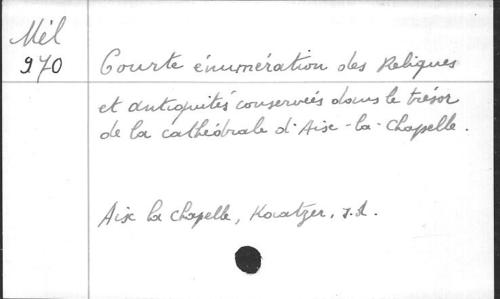 Mél
970
Courte énumération des Reliques
et antiquités conservées dans le trésor
de la cathédrale d'Aix-la-Chapelle.
Aix la Chapelle, Kaatzer, s.d.